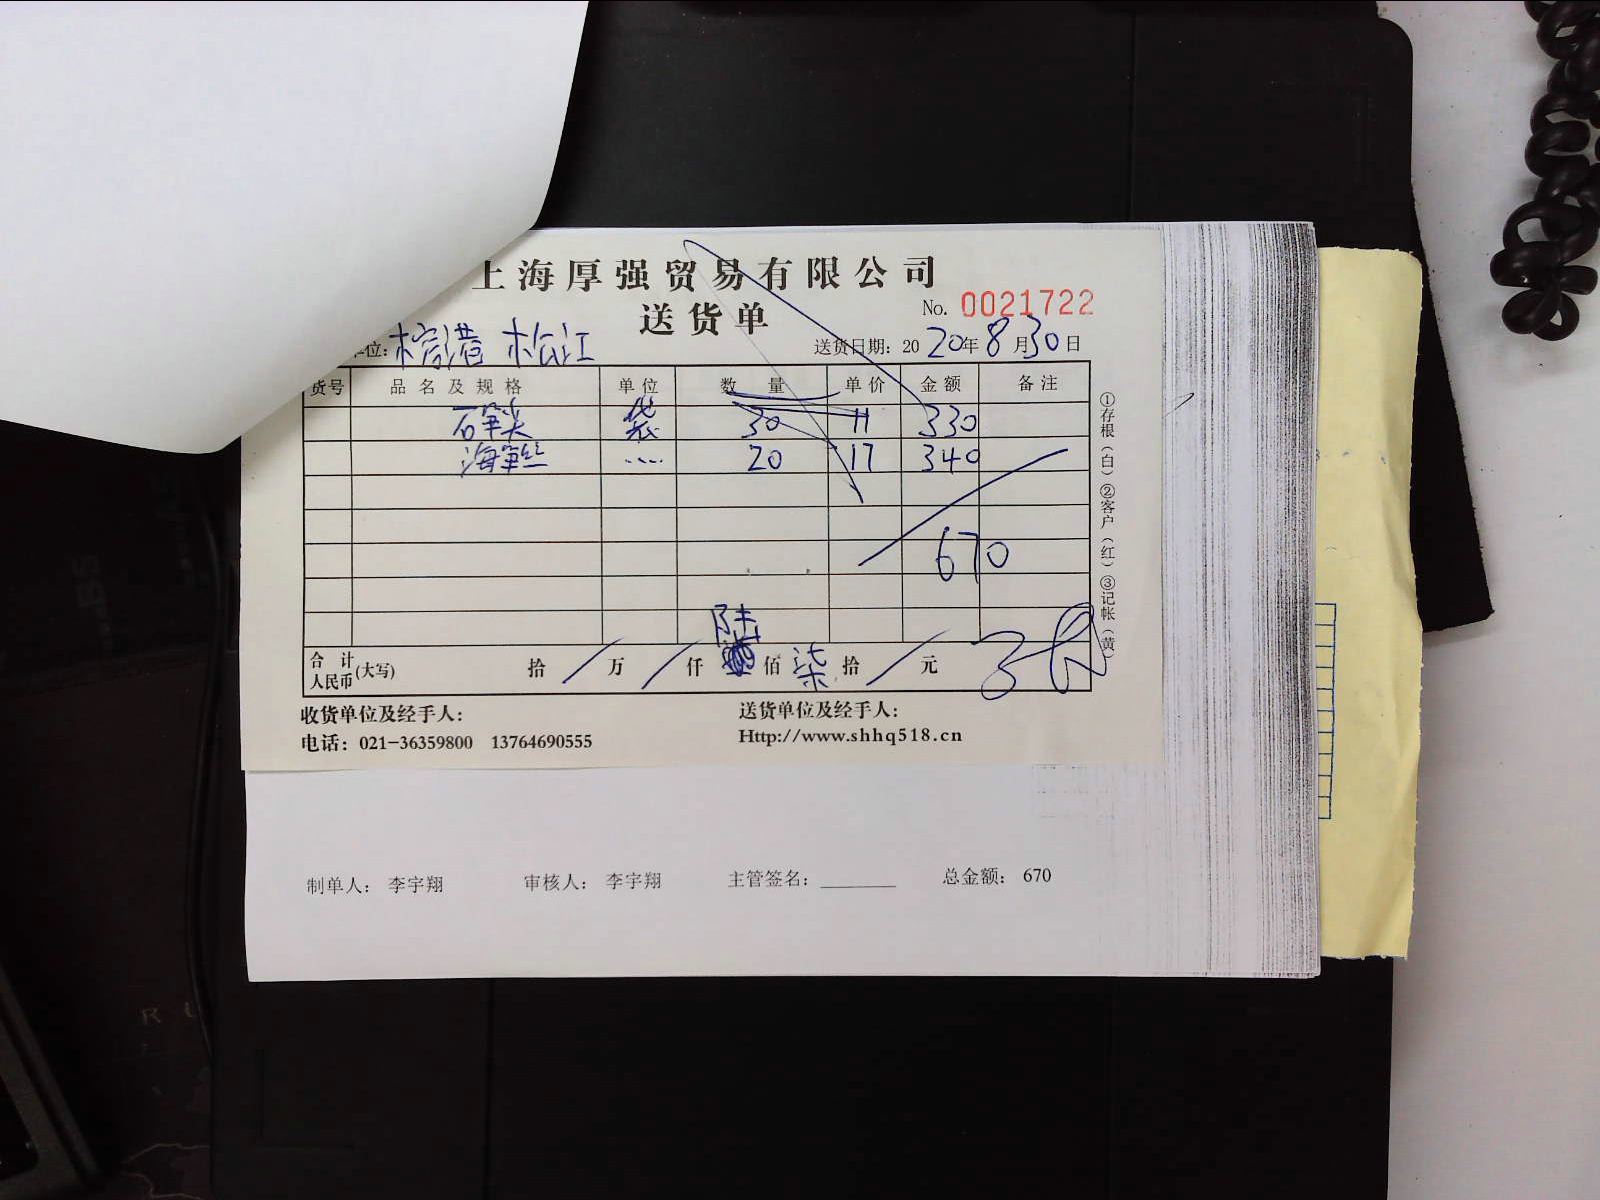 上海厚强贸易有限公司
送货单
No. 0021722
位: 松江
送货日期: 2020年8月30日
货号 品名及规格 单位 数量 单价 金额 备注
石笋尖 袋 30 11 330
海笋丝 .... 20 17 340
670
合计人民币(大写) 拾 / 万 / 仟 陆 佰 柒 拾 / 元
①存根(白)②客户(红)③记帐(黄)
收货单位及经手人:
送货单位及经手人:
电话: 021-36359800 13764690555
Http://www.shhq518.cn
制单人: 李宇翔 审核人: 李宇翔 主管签名: ________ 总金额: 670